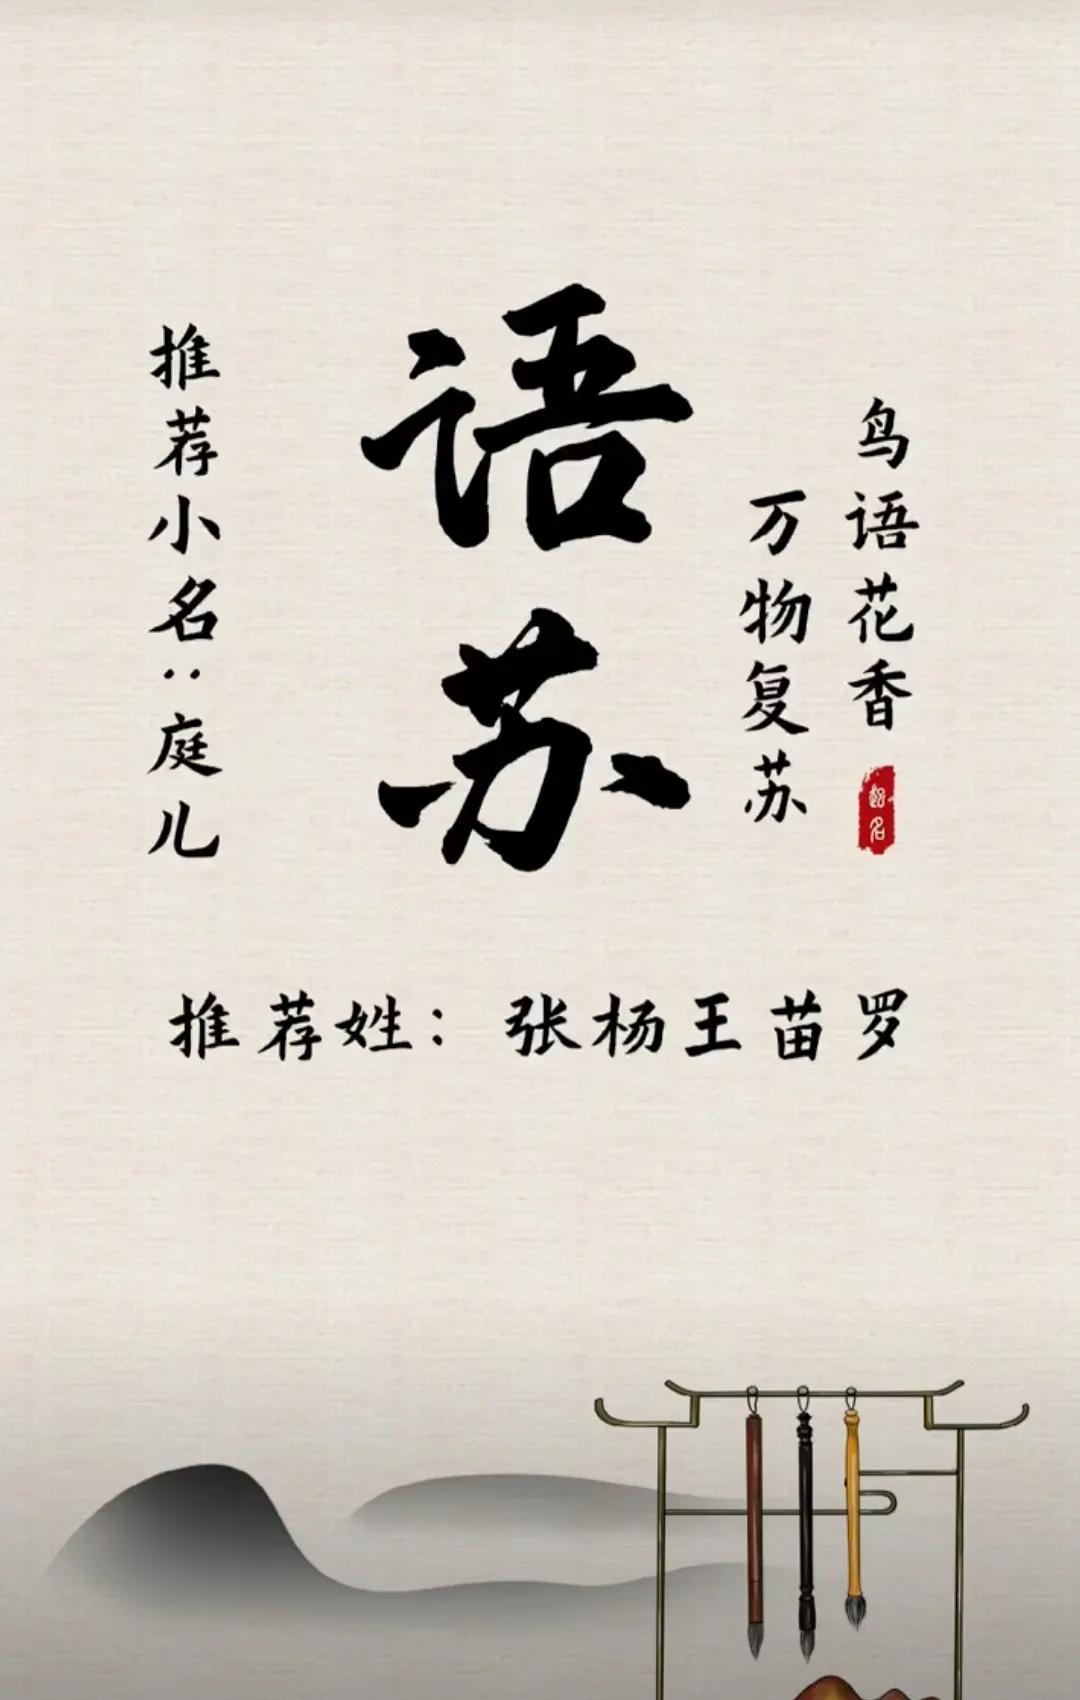 鸟语花香
万物复苏
起名
语苏
推荐小名：庭儿
推荐姓：张杨王苗罗